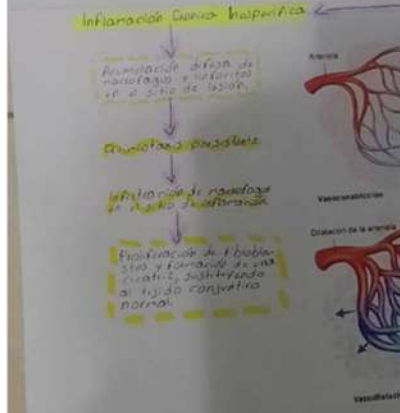 Inflamación Cronica Inespecifica
Acumulación difusa de
macrofagos y linfocitos
en el sitio de lesión.
Quimiotaxis persistente
Infiltración de macrofagos
en el sitio de inflamación
Proliferación de fibrobla-
stos y formación de una
cicatriz, sustituyendo
al tejido conjuntivo
normal.
Arteriola
Vasoconstricción
Dilatación de la arteriola